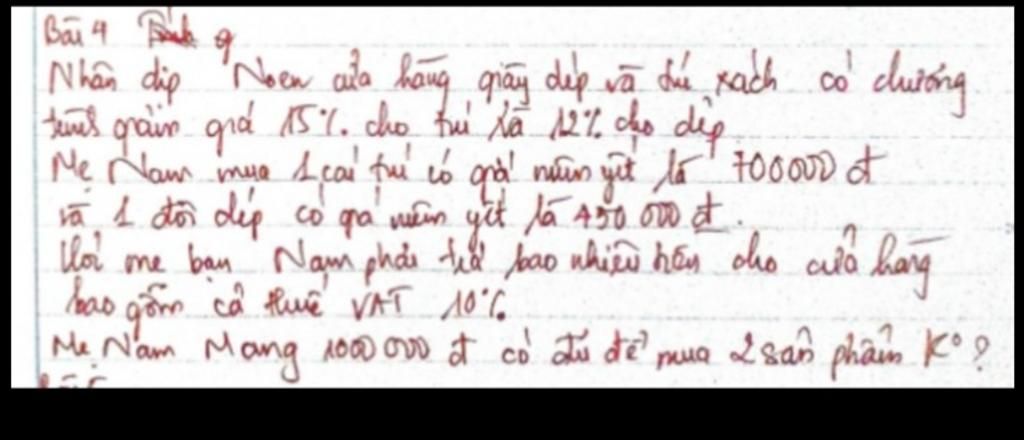 Bài 4
Nhân dịp Noen cửa hàng giày dép và túi xách có chương
trình giảm giá 15% cho túi và 12% cho dép
Mẹ Nam mua 1 cái túi có giá niêm yết là 700000 đ
và 1 đôi dép có giá niêm yết là 450 000 đ.
Hỏi mẹ bạn Nam phải trả bao nhiêu tiền cho cửa hàng
bao gồm cả thuế VAT 10%.
Mẹ Nam Mang 1000 000 đ có đủ để mua 2 sản phẩm K° ?